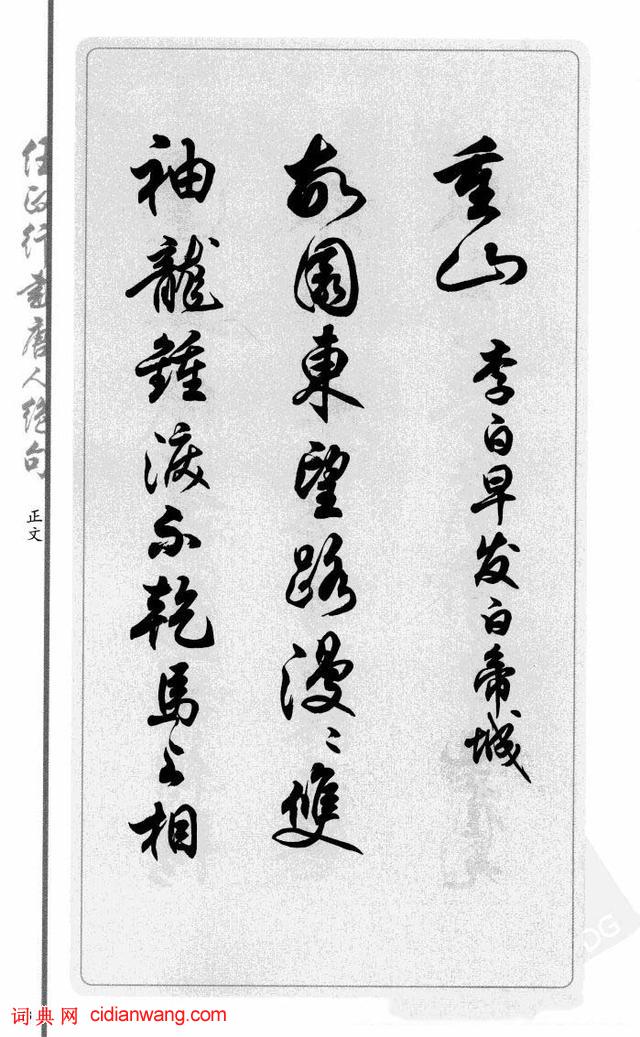 重山 李白早发白帝城
故園東望路漫〻雙
袖龍鍾淚不乾馬上相
任政行書唐人绝句
正文
词典网 cidianwang.com
DG